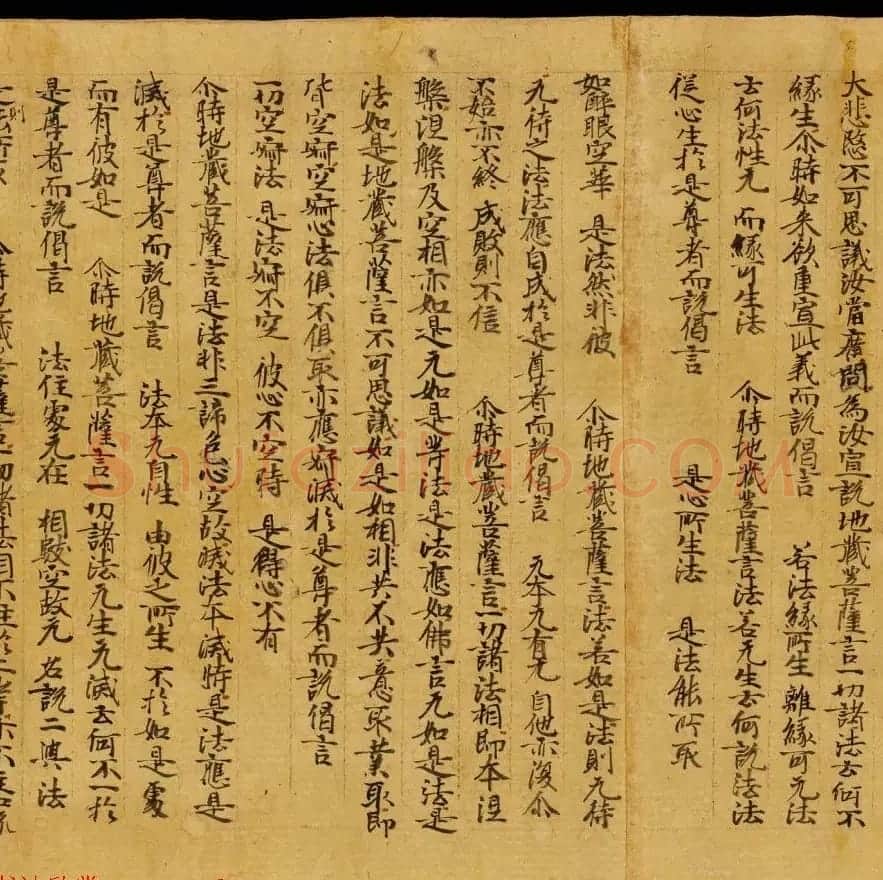 大悲愍不可思議汝當廣問為汝宣說地藏菩薩言一切諸法云何不
緣生尒時如来欲重宣此義而說偈言 若法緣所生 離緣可无法
云何法性无 而緣可生法 尒時地藏菩薩言法若无生云何說法法
從心生於是尊者而說偈言 是心所生法 是法能所取
如醉眼空華 是法然非彼 尒時地藏菩薩言法若如是法則无待
无待之法法應自成於是尊者而說偈言 无本无有无 自他亦復尒
不始亦不終 成敗則不信 尒時地藏菩薩言一切諸法相即本涅
槃涅槃及空相亦如是无如是等法是法應如佛言无如是法是
法如是地藏菩薩言不可思議如是如相非共不共意取業取即
皆空寂空寂心法俱不俱取亦應寂滅於是尊者而說偈言
一切空寂法 是法寂不空 彼心不空時 是得心不有
尒時地藏菩薩言是法非三諦色心空故滅法本滅時是法應是
滅於是尊者而說偈言 法本无自性 由彼之所生 不於如是處
而有彼如是 尒時地藏菩薩言一切諸法无生无滅云何不一於
是尊者而說偈言 法住處无在 相數空故无 名說二與法
shufaziliao.COM